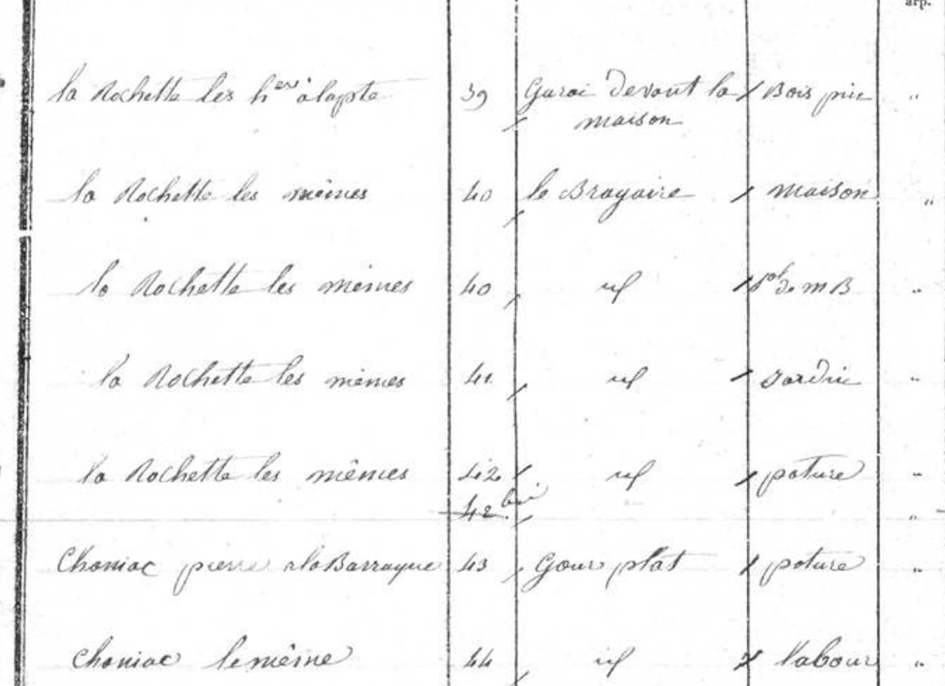 arp.
la Rochette les h^ers à lapte 39 Garai devant la Bois pin "
maison
la Rochette les mêmes 40 le Brayaire maison "
la Rochette les mêmes 40 id sol de m B "
la Rochette les mêmes 41 id Jardin "
la Rochette les mêmes 42 id pature "
42 bis "
Chaniac pierre a la Barraque 43 Gour plat pature "
Chaniac le même 44 id labour "